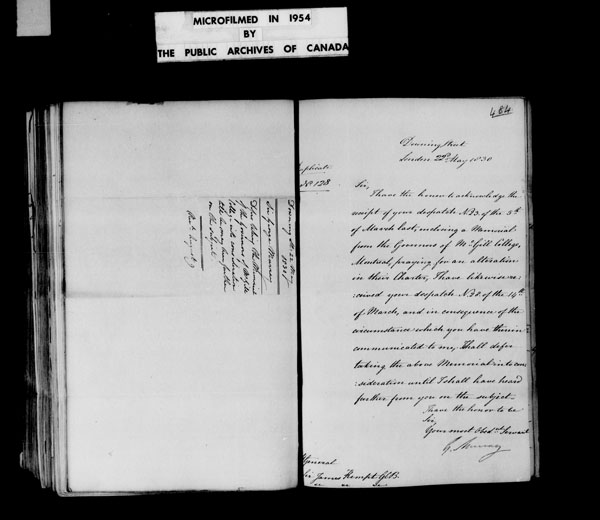 MICROFILMED IN 1954
BY
THE PUBLIC ARCHIVES OF CANADA
464
Downing Street
London 22d May 1830
uplicate
No. 128
Sir,
I have the honor to acknowledge the
receipt of your despatch No 23 of the 5th
of March last, inclosing a Memorial
from the Governors of McGill College,
Montreal, praying for an alteration
in their Charter, I have likewise re-
:ceived your despatch No 30 of the 14th
of March, and in consequence of the
circumstance which you have therein
communicated to me, I shall defer
taking the above Memorial into con-
:sideration until I shall have heard
further from you on the subject.
I have the honor to be
Sir,
Your most Obedt Servant
G. Murray
General
Sir James Kempt GCB.
Downing St. 22 May
1830
Sir George Murray
Defers taking the Memorial
of the Governors of McGill
College into consideration
on the subject